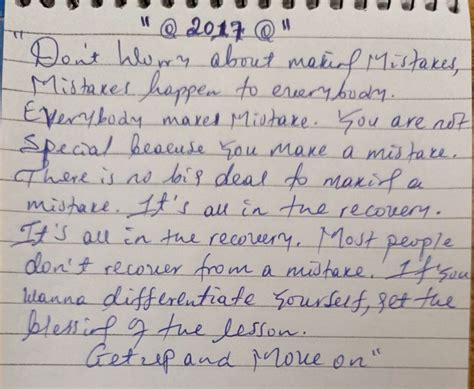 "@ 2017 @"
"Don't Worry about making Mistakes,
Mistakes happen to everybody.
Everybody makes Mistake. You are not
Special because You make a mistake.
There is no big deal to making a
mistake. It's all in the recovery.
It's all in the recovery. Most people
don't recover from a mistake. If you
Wanna differentiate Yourself, get the
blessing of the lesson.
Get up and Move on"